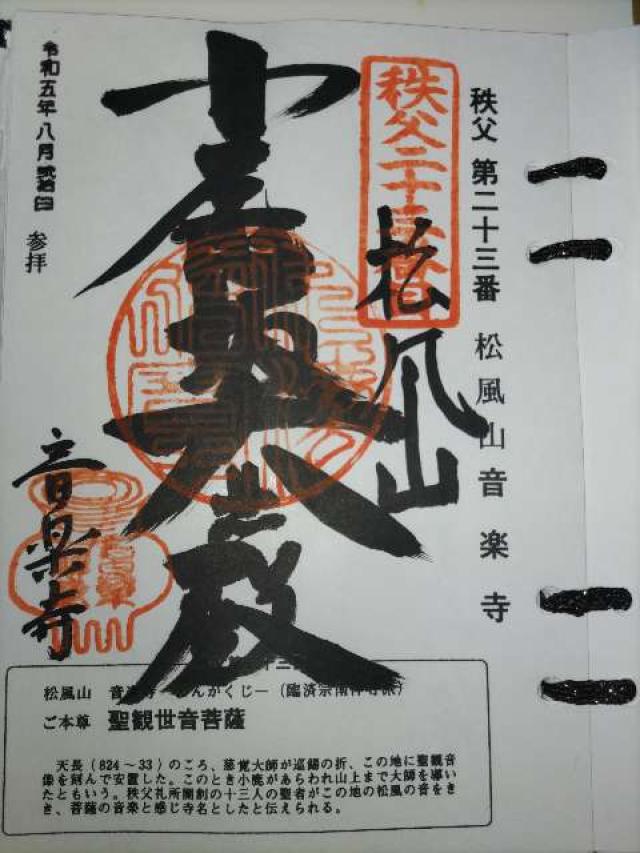 秩父 第二十三番 松風山音楽寺
秩父二十三番
松風山
殿
音楽寺
令和五年八月
参拝
松風山
(臨済宗南禅寺派)
ご本尊 聖観世音菩薩
天長(824～33)のころ、慈覚大師が巡錫の折、この地に聖観音
像を刻んで安置した。このとき小鹿があらわれ山上まで大師を導い
たともいう。秩父札所開創の十三人の聖者がこの地の松風の音をき
き、菩薩の音楽と感じ寺名としたと伝えられる。